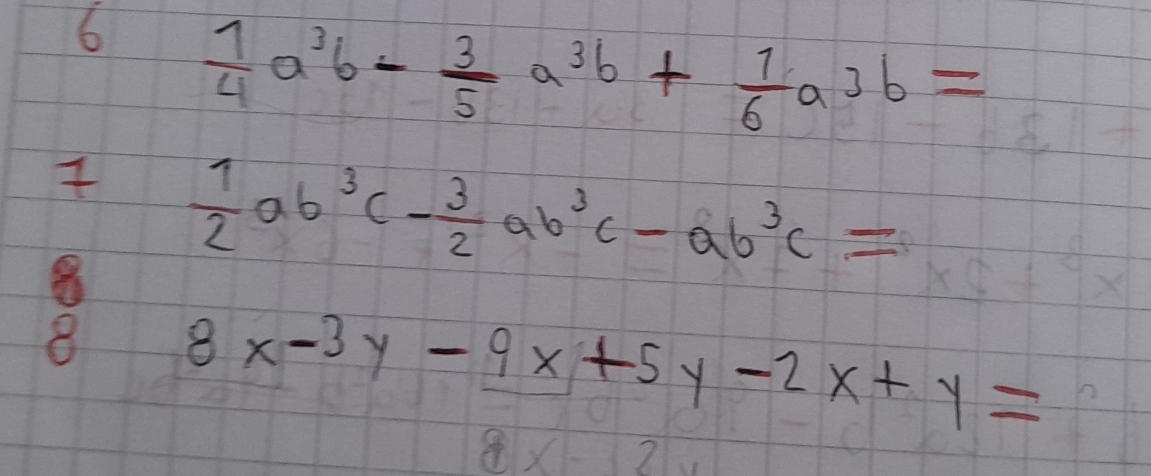 6 1/4 a³b - 3/5 a³b + 1/6 a3b =
7 1/2 ab³c - 3/2 ab³c - ab³c =
8
8 8x - 3y - 9x + 5y - 2x + y =
8x 2y